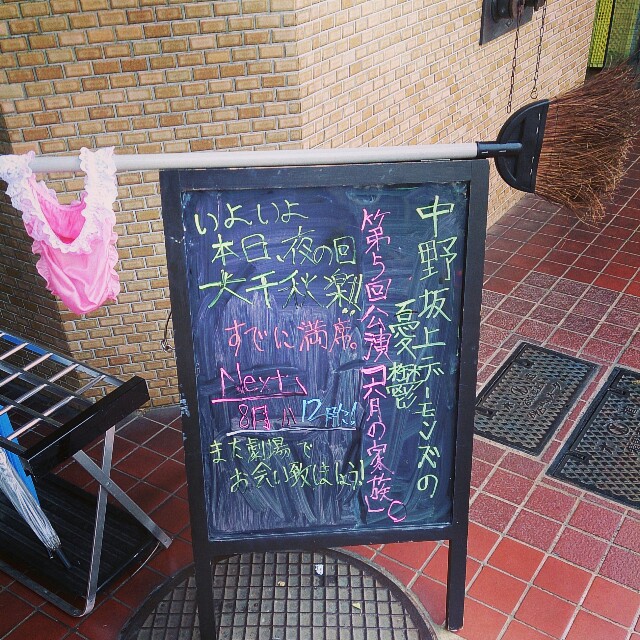 中野坂上デーモンズの
憂鬱
第5回公演「六月の家族」。
いよいよ
本日、夜の回
大千秋楽!!
すでに満席。
Next
8月
また劇場で
お会い致しましょう!